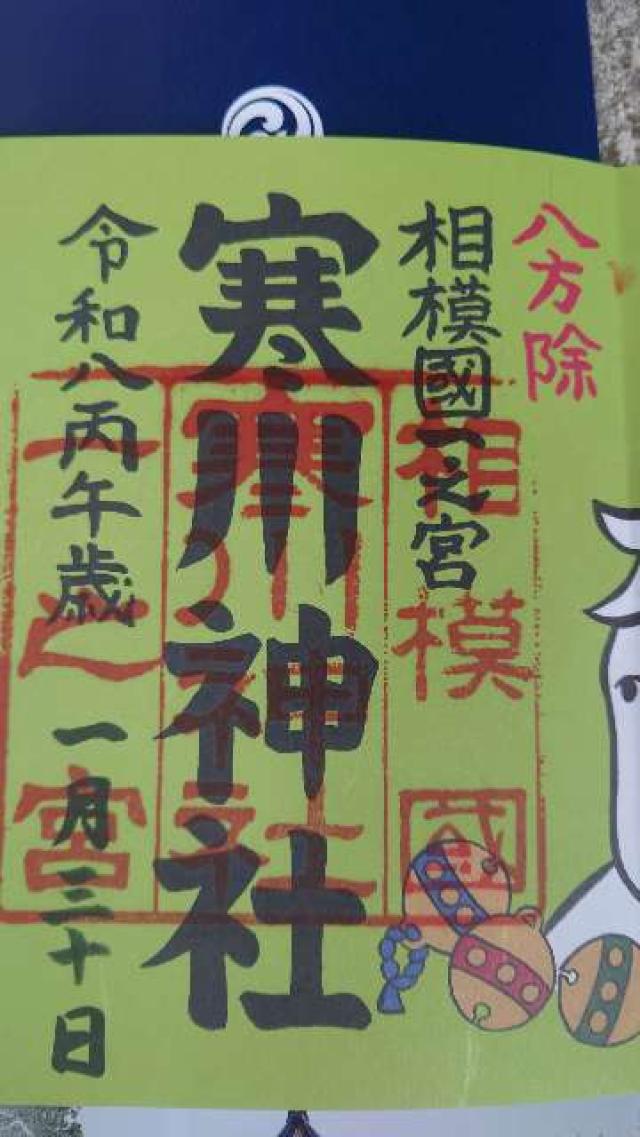 八方除
相模國一之宮
寒川神社
令和八丙午歳 一月三十日
相模國
寒川神社
一之宮